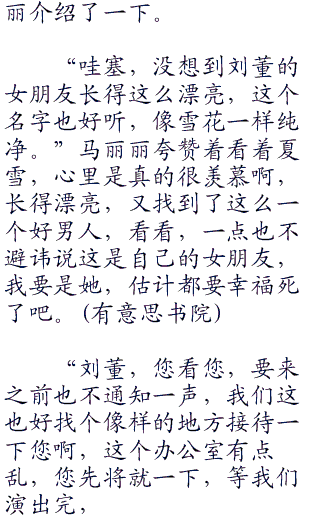 丽介绍了一下。
“哇塞，没想到刘董的
女朋友长得这么漂亮，这个
名字也好听，像雪花一样纯
净。”马丽丽夸赞着看着夏
雪，心里是真的很羡慕啊，
长得漂亮，又找到了这么一
个好男人，看看，一点也不
避讳说这是自己的女朋友，
我要是她，估计都要幸福死
了吧。(有意思书院)
“刘董，您看您，要来
之前也不通知一声，我们这
也好找个像样的地方接待一
下您啊，这个办公室有点
乱，您先将就一下，等我们
演出完，